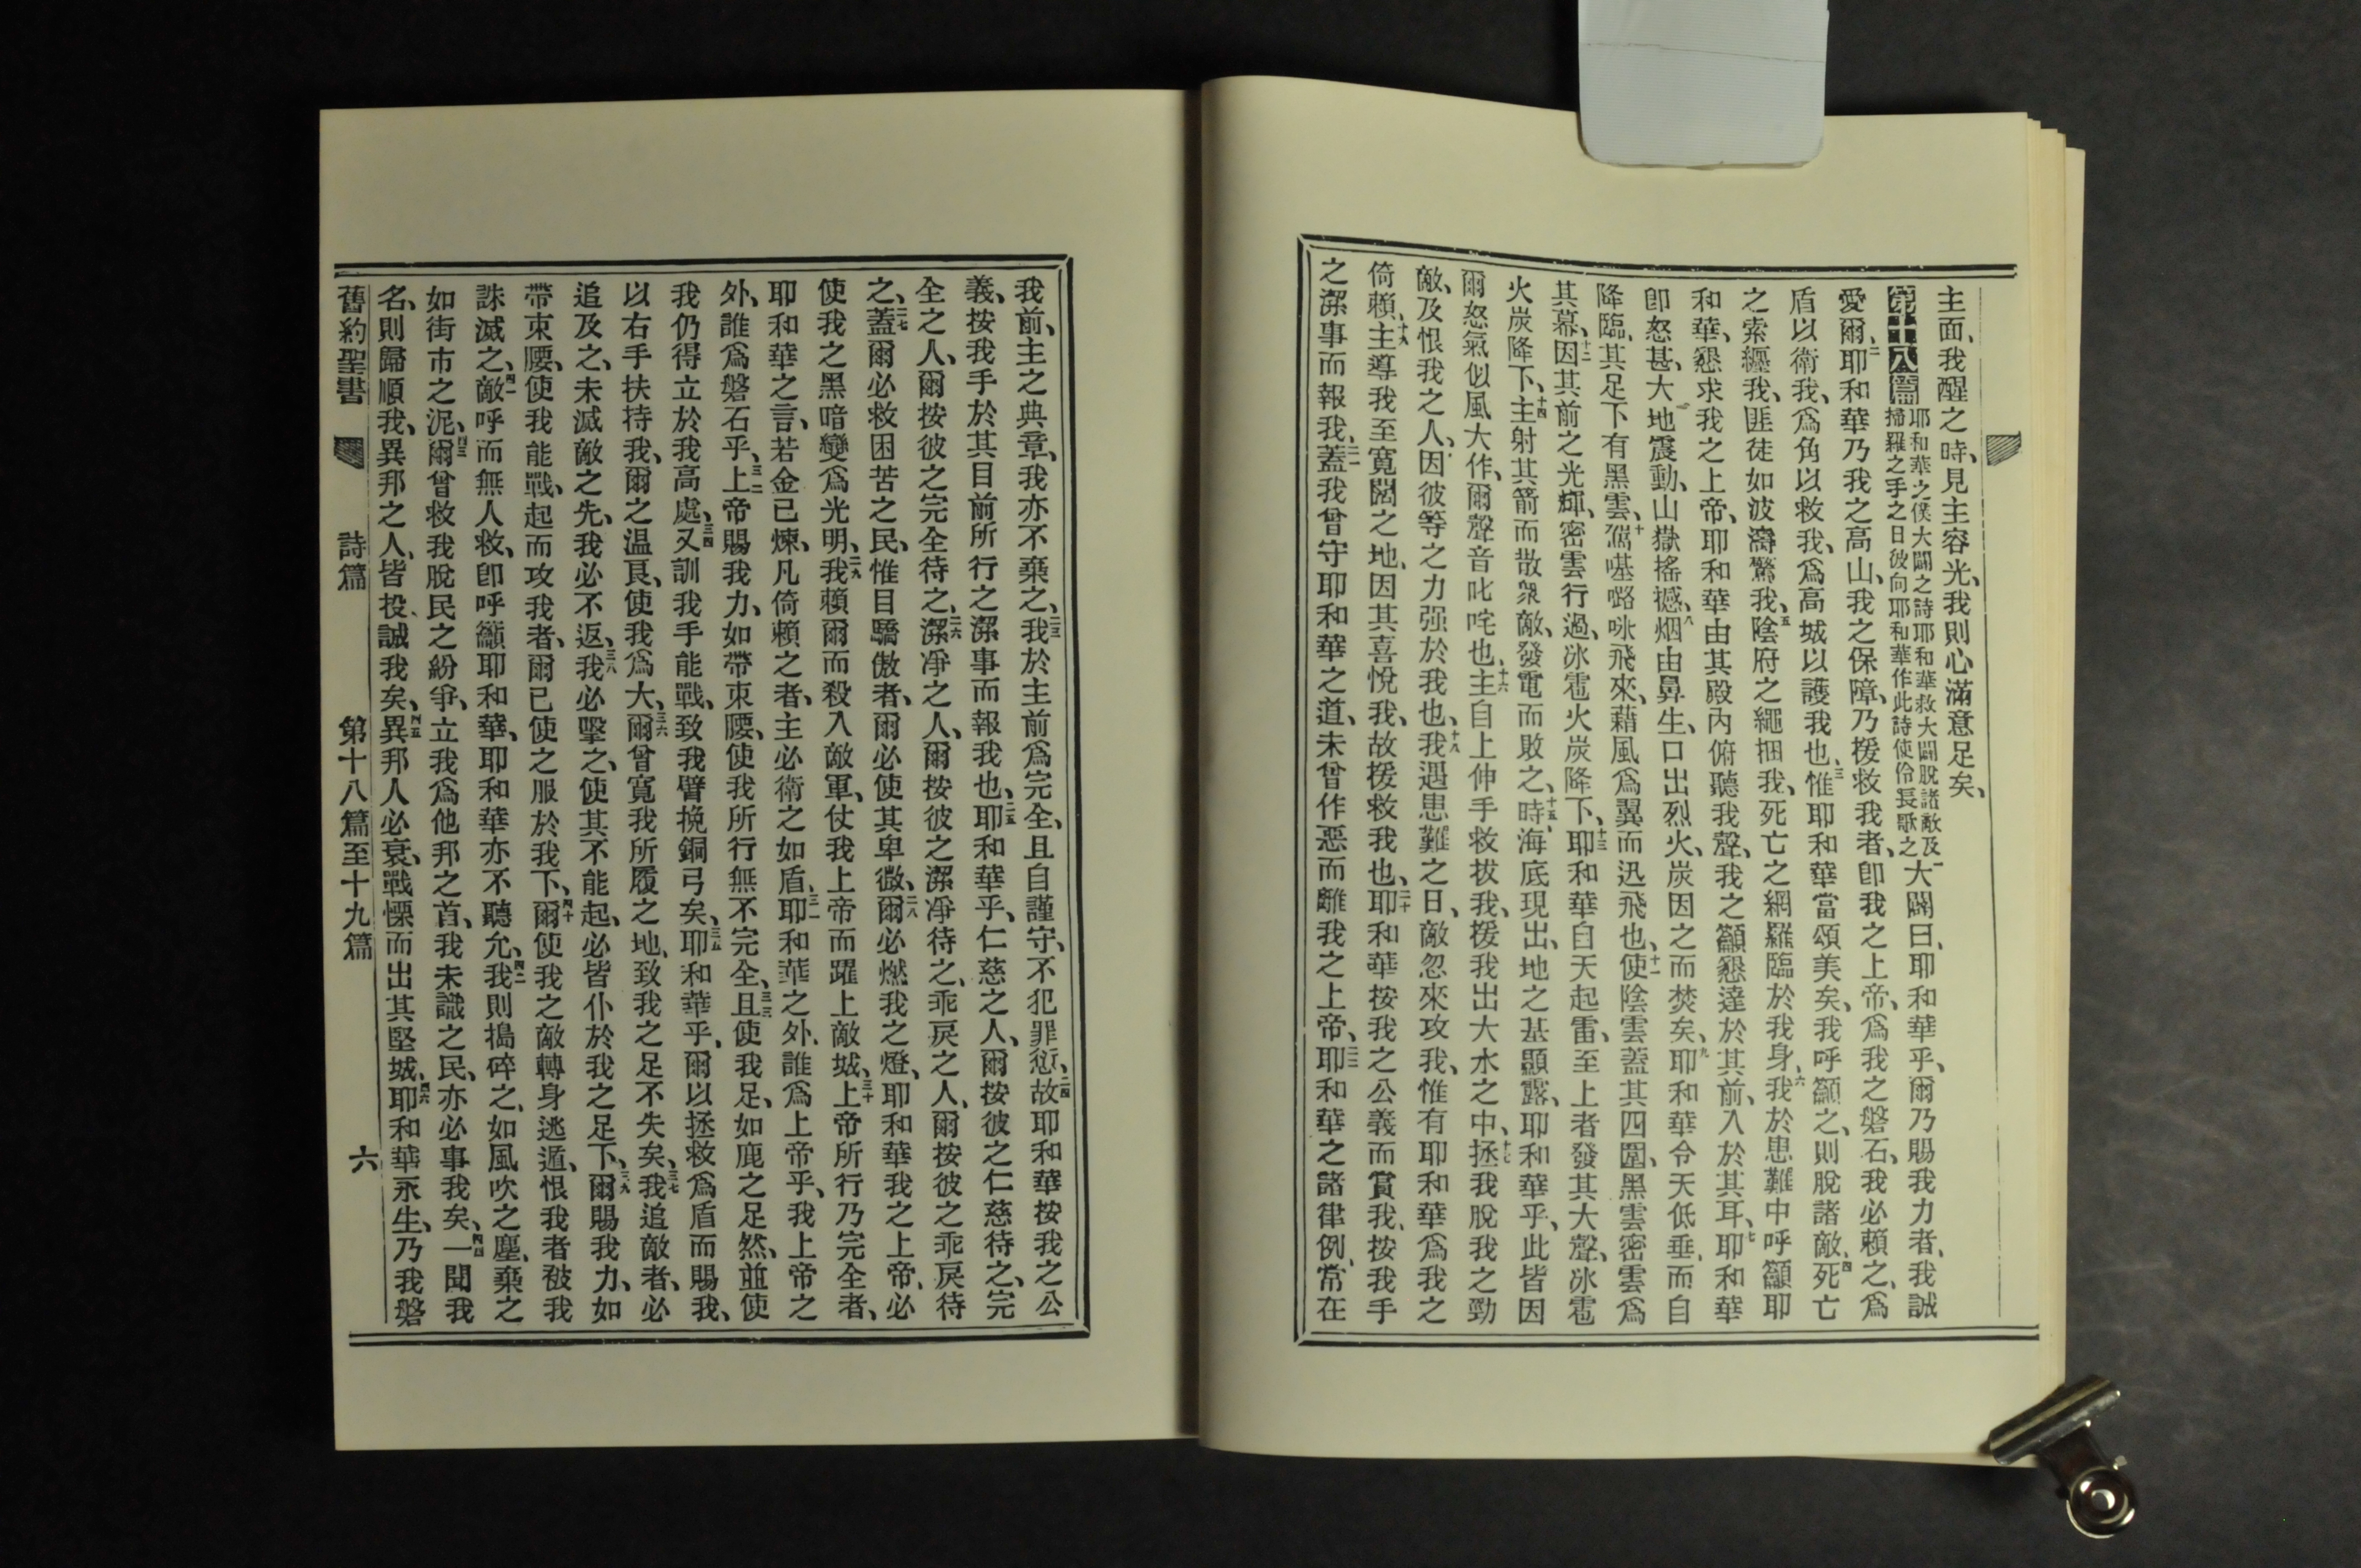 主面、我醒之時、見主容光、我則心滿意足矣、
第十八篇 耶和華之僕大闢之詩耶和華救大闢脫諸敵及掃羅之手之日彼向耶和華作此詩使伶長歌之 一大闢曰、耶和華乎、爾乃賜我力者、我誠
愛爾、二耶和華乃我之高山、我之保障、乃援救我者、卽我之上帝、爲我之磐石、我必賴之、爲
盾以衛我、爲角以救我、爲高城以護我也、三惟耶和華當頌美矣、我呼籲之、則脫諸敵、四死亡
之索纏我、匪徒如波濤驚我、五陰府之繩捆我、死亡之網羅臨於我身、六我於患難中呼籲耶
和華、懇求我之上帝、耶和華由其殿內俯聽我聲、我之籲懇達於其前、入於其耳、七耶和華
卽怒甚、大地震動、山嶽搖撼、八烟由鼻生、口出烈火、炭因之而焚矣、九耶和華令天低垂、而自
降臨、其足下有黑雲、十偈𠼻㗉𠲖飛來、藉風爲翼而迅飛也、十一使陰雲蓋其四圍、黑雲密雲爲
其幕、十二因其前之光輝、密雲行過、冰雹火炭降下、十三耶和華自天起雷、至上者發其大聲、冰雹
火炭降下、十四主射其箭而散衆敵、發電而敗之、十五時、海底現出、地之基顯露、耶和華乎、此皆因
爾怒氣似風大作、爾聲音叱咤也、十六主自上伸手救拔我、援我出大水之中、十七拯我脫我之勁
敵、及恨我之人、因彼等之力强於我也、十八我遇患難之日、敵忽來攻我、惟有耶和華爲我之
倚賴、十九主導我至寬闊之地、因其喜悅我、故援救我也、二十耶和華按我之公義而賞我、按我手
之潔事而報我、二一蓋我曾守耶和華之道、未曾作惡而離我之上帝、二二耶和華之諸律例、常在
我前、主之典章、我亦不棄之、二三我於主前爲完全、且自謹守、不犯罪愆、二四故耶和華按我之公
義、按我手於其目前所行之潔事而報我也、二五耶和華乎、仁慈之人、爾按彼之仁慈待之、完
全之人、爾按彼之完全待之、二六潔淨之人、爾按彼之潔淨待之、乖戾之人、爾按彼之乖戾待
之、二七蓋爾必救困苦之民、惟目驕傲者、爾必使其卑微、二八爾必燃我之燈、耶和華我之上帝、必
使我之黑暗變爲光明、二九我賴爾而殺入敵軍、仗我上帝而躍上敵城、三十上帝所行乃完全者、
耶和華之言、若金已煉、凡倚賴之者、主必衛之如盾、三一耶和華之外、誰爲上帝乎、我上帝之
外、誰爲磐石乎、三二上帝賜我力、如帶束腰、使我所行無不完全、三三且使我足、如鹿之足然、並使
我仍得立於我高處、三四又訓我手能戰、致我臂挽銅弓矣、三五耶和華乎、爾以拯救爲盾而賜我、
以右手扶持我、爾之温良、使我爲大、三六爾曾寬我所履之地、致我之足不失矣、三七我追敵者、必
追及之、未滅敵之先、我必不返、三八我必擊之、使其不能起、必皆仆於我之足下、三九爾賜我力、如
帶束腰、使我能戰、起而攻我者、爾已使之服於我下、四十爾使我之敵轉身逃遁、恨我者被我
誅滅之、四一敵呼而無人救、卽呼籲耶和華、耶和華亦不聽允、四二我則搗碎之、如風吹之塵、棄之
如街市之泥、四三爾曾救我脫民之紛爭、立我爲他邦之首、我未識之民、亦必事我矣、四四一聞我
名、則歸順我、異邦之人、皆投誠我矣、四五異邦人必衰、戰慄而出其堅城、四六耶和華永生、乃我磐
舊約聖書 詩篇 第十八篇至十九篇 六